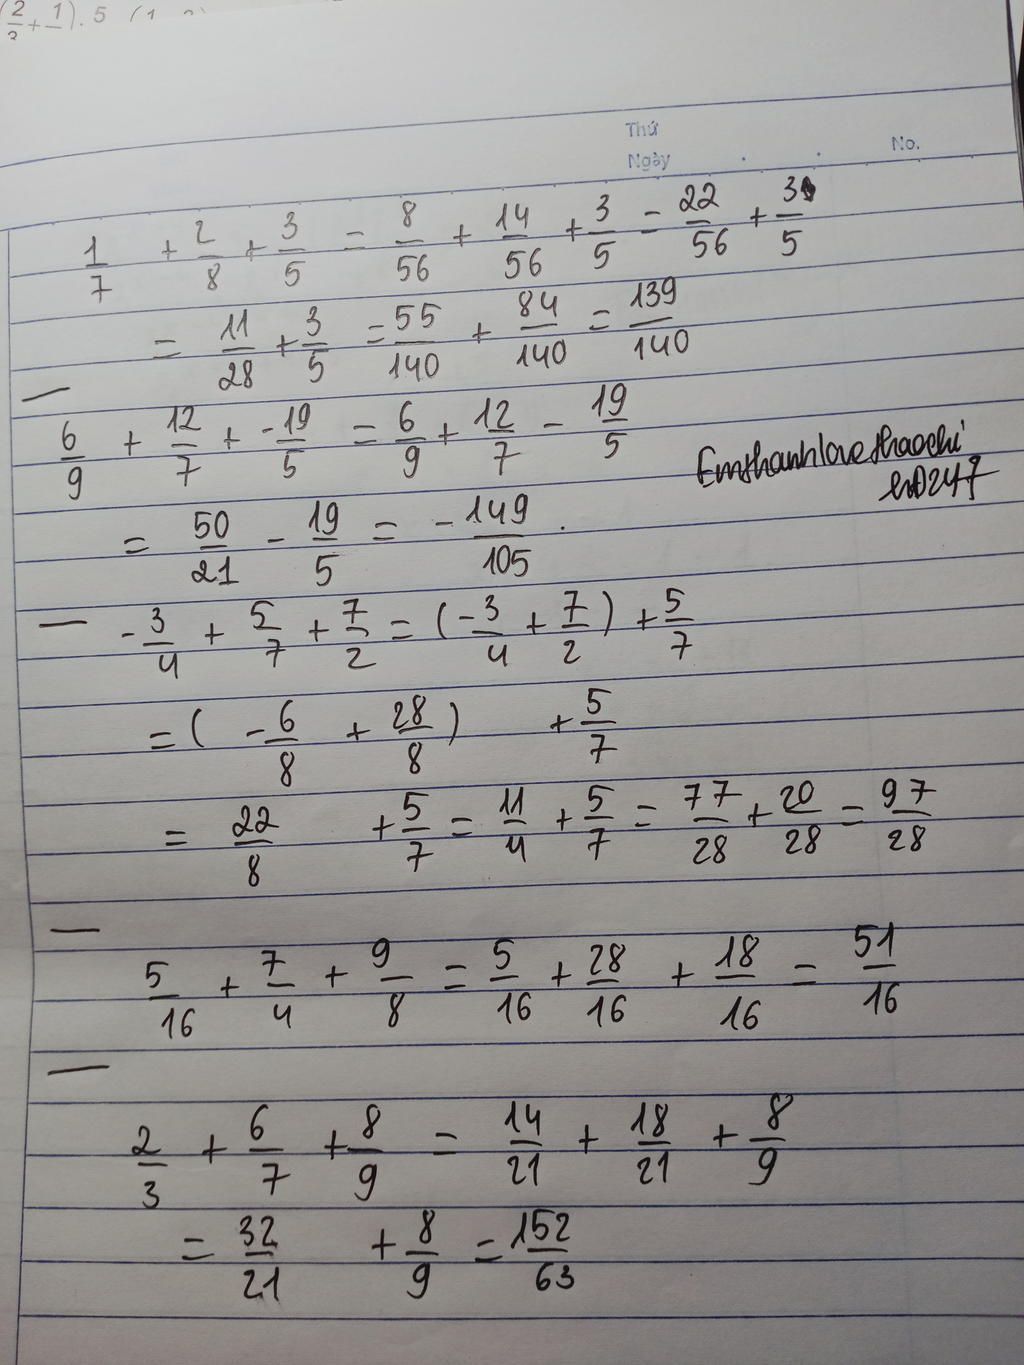 Thứ
Ngày
No.
1/7 + 2/8 + 3/5 = 8/56 + 14/56 + 3/5 = 22/56 + 3/5
= 11/28 + 3/5 = 55/140 + 84/140 = 139/140
6/9 + 12/7 + -19/5 = 6/9 + 12/7 - 19/5
= 50/21 - 19/5 = -149/105.
-3/4 + 5/7 + 7/2 = (-3/4 + 7/2) + 5/7
= ( -6/8 + 28/8 ) + 5/7
= 22/8 + 5/7 = 11/4 + 5/7 = 77/28 + 20/28 = 97/28
5/16 + 7/4 + 9/8 = 5/16 + 28/16 + 18/16 = 51/16
2/3 + 6/7 + 8/9 = 14/21 + 18/21 + 8/9
= 32/21 + 8/9 = 152/63